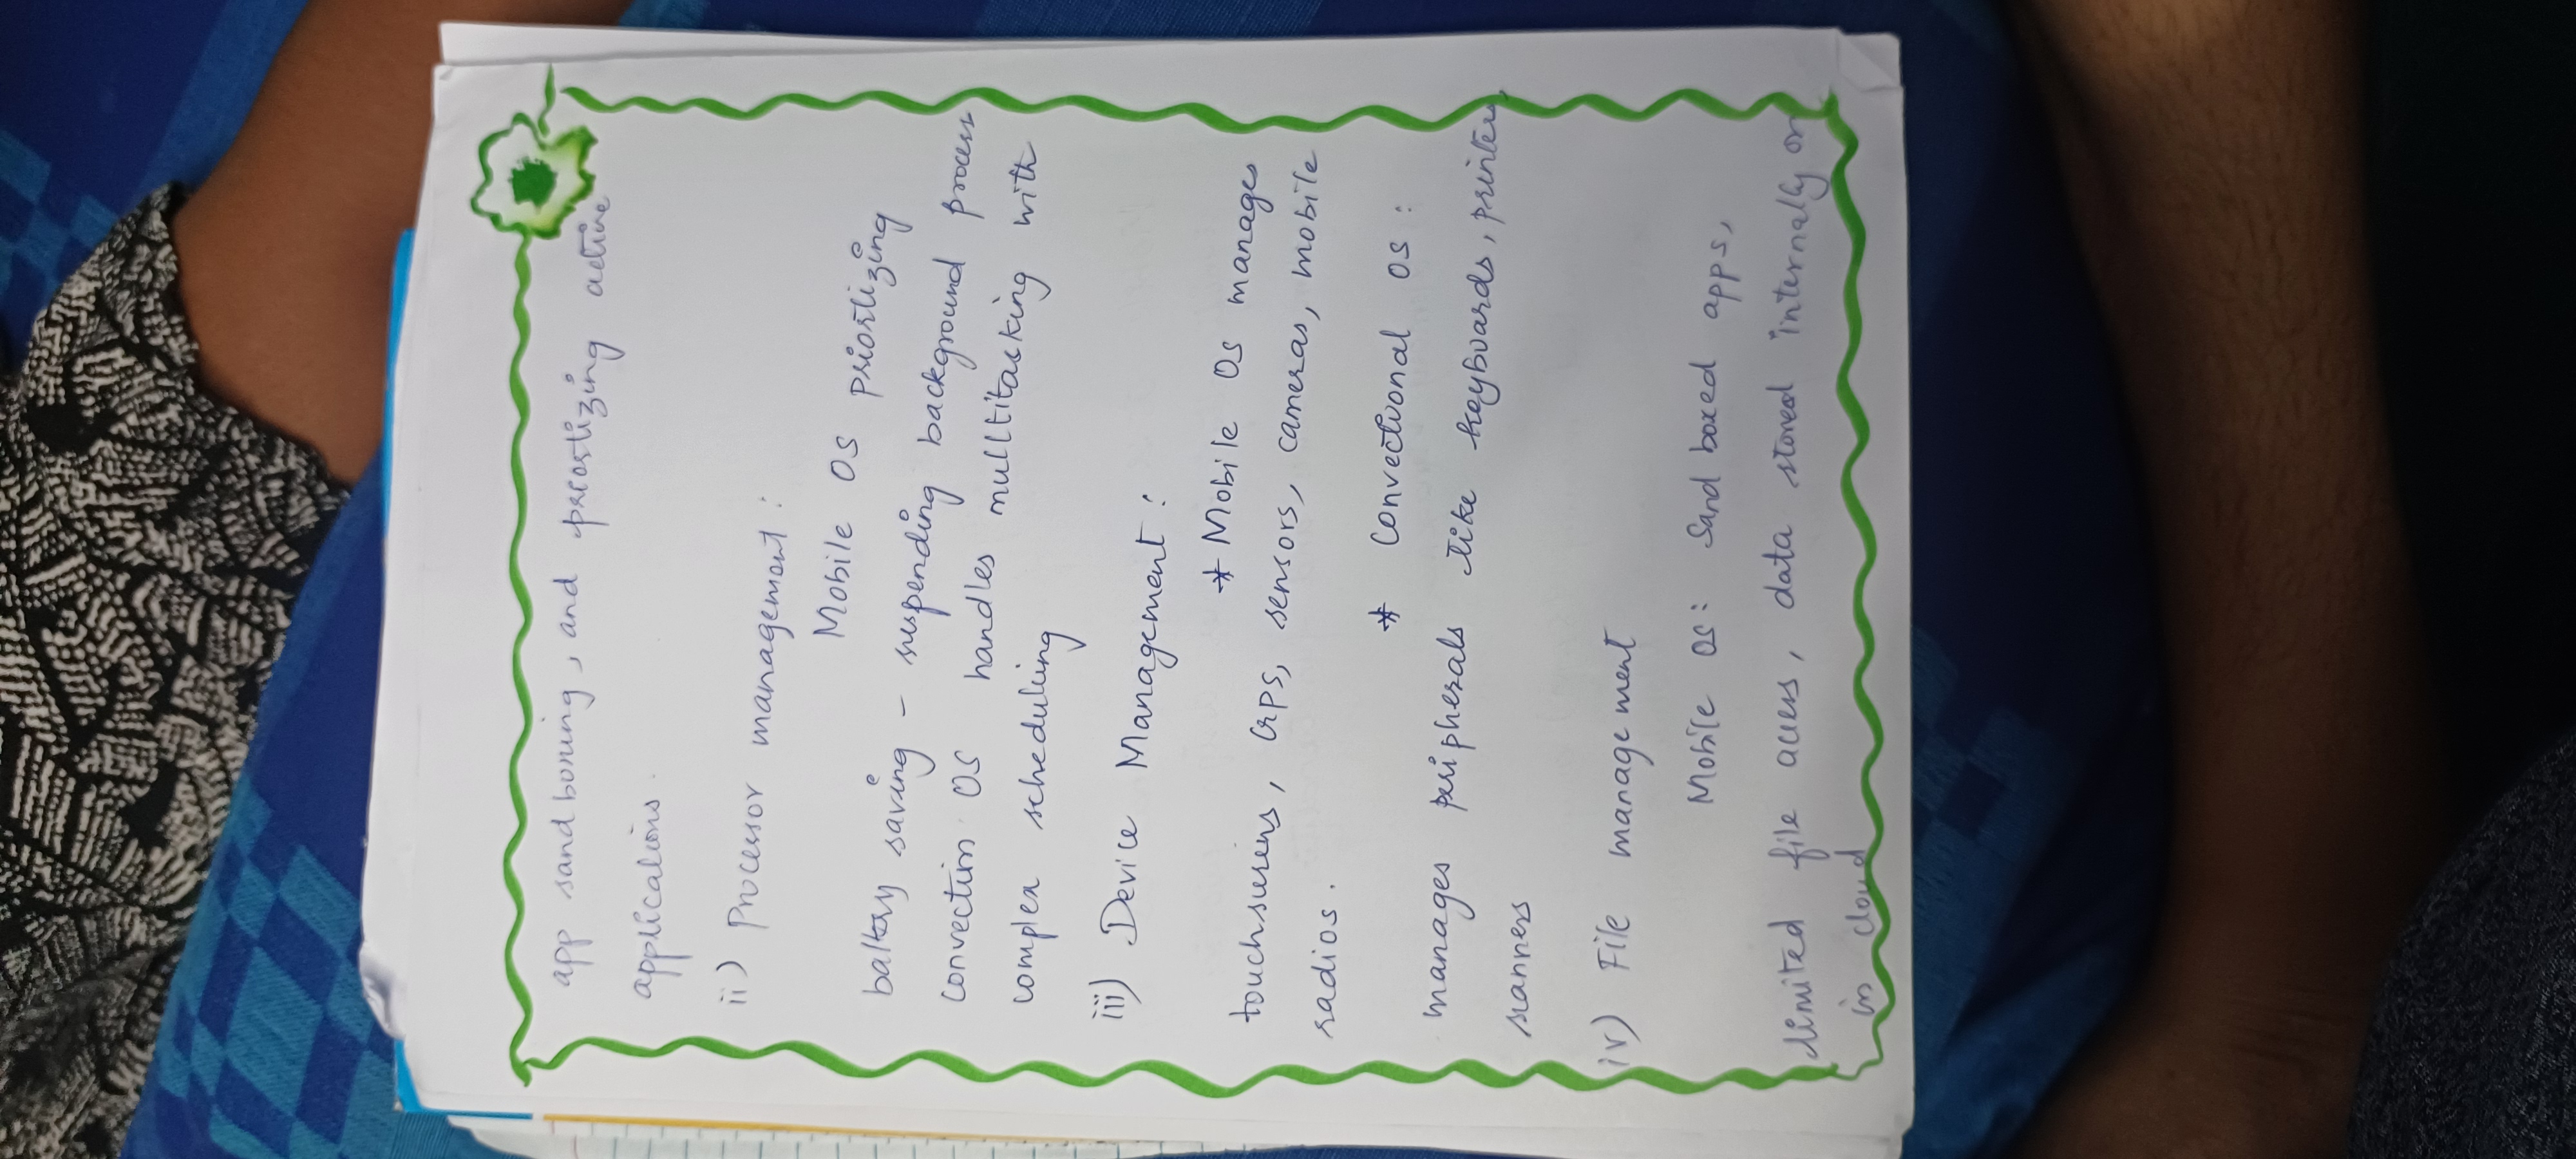 app sand boxing, and priortizing active
applications.
ii) Processor management:
Mobile OS priortizing
battery saving - suspending background process
convection OS handles mulltitasking with
complex scheduling
iii) Device Management:
* Mobile Os manages
touchscreens, GPS, sensors, cameras, mobile
radios.
* Convectional OS:
manages peripherals like keyboards, printers,
scanners
iv) File management
Mobile OS: Sand boxed apps,
limited file access, data stored internally or
in cloud